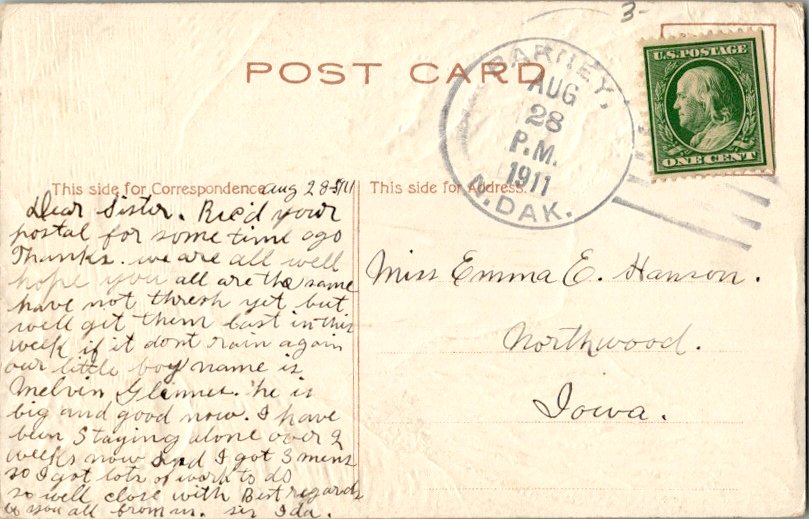 3-
POST CARD
U.S. POSTAGE
ONE CENT
BARNEY,
AUG
28
P.M.
1911
N.DAK.
This side for Correspondence
Aug 28-1911
This side for Address.
Dear Sister. Rec'd your
postal for some time ago
Thanks. we are all well
hope you all are the same
have not thresh yet but
well get them last in this
week if it dont rain again
our little boy name is
Melvin he is
big and good now. I have
been staying alone over 2
weeks now and I got 3 mens
so I got lots of work to do
so well close with Best regards
to you all from us. sis Ida.
Miss Emma E. Hanson.
Northwood.
Iowa.